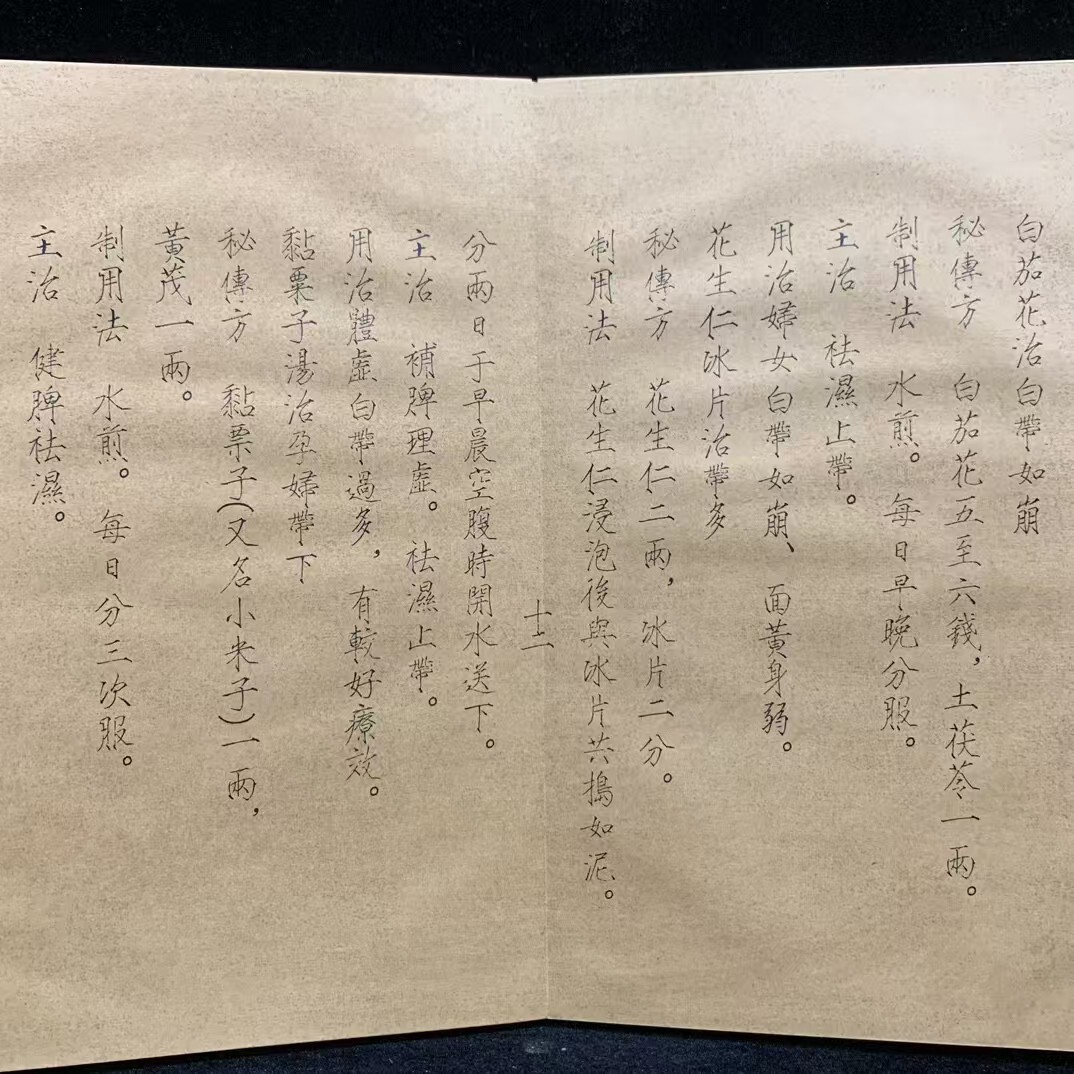 白茄花治白帶如崩
秘傳方　白茄花五至六錢，土茯苓一兩。
制用法　水煎。每日早晚分服。
主治　祛濕止帶。
用治婦女白帶如崩、面黃身弱。
花生仁冰片治帶多
秘傳方　花生仁二兩，冰片二分。
制用法　花生仁浸泡後與冰片共搗如泥。
十二
分兩日于早晨空腹時開水送下。
主治　補脾理虛。祛濕止帶。
用治體虛白帶過多，有較好療效。
黏栗子湯治孕婦帶下
秘傳方　黏栗子（又名小米子）一兩，
黃茂一兩。
制用法　水煎。每日分三次服。
主治　健脾祛濕。